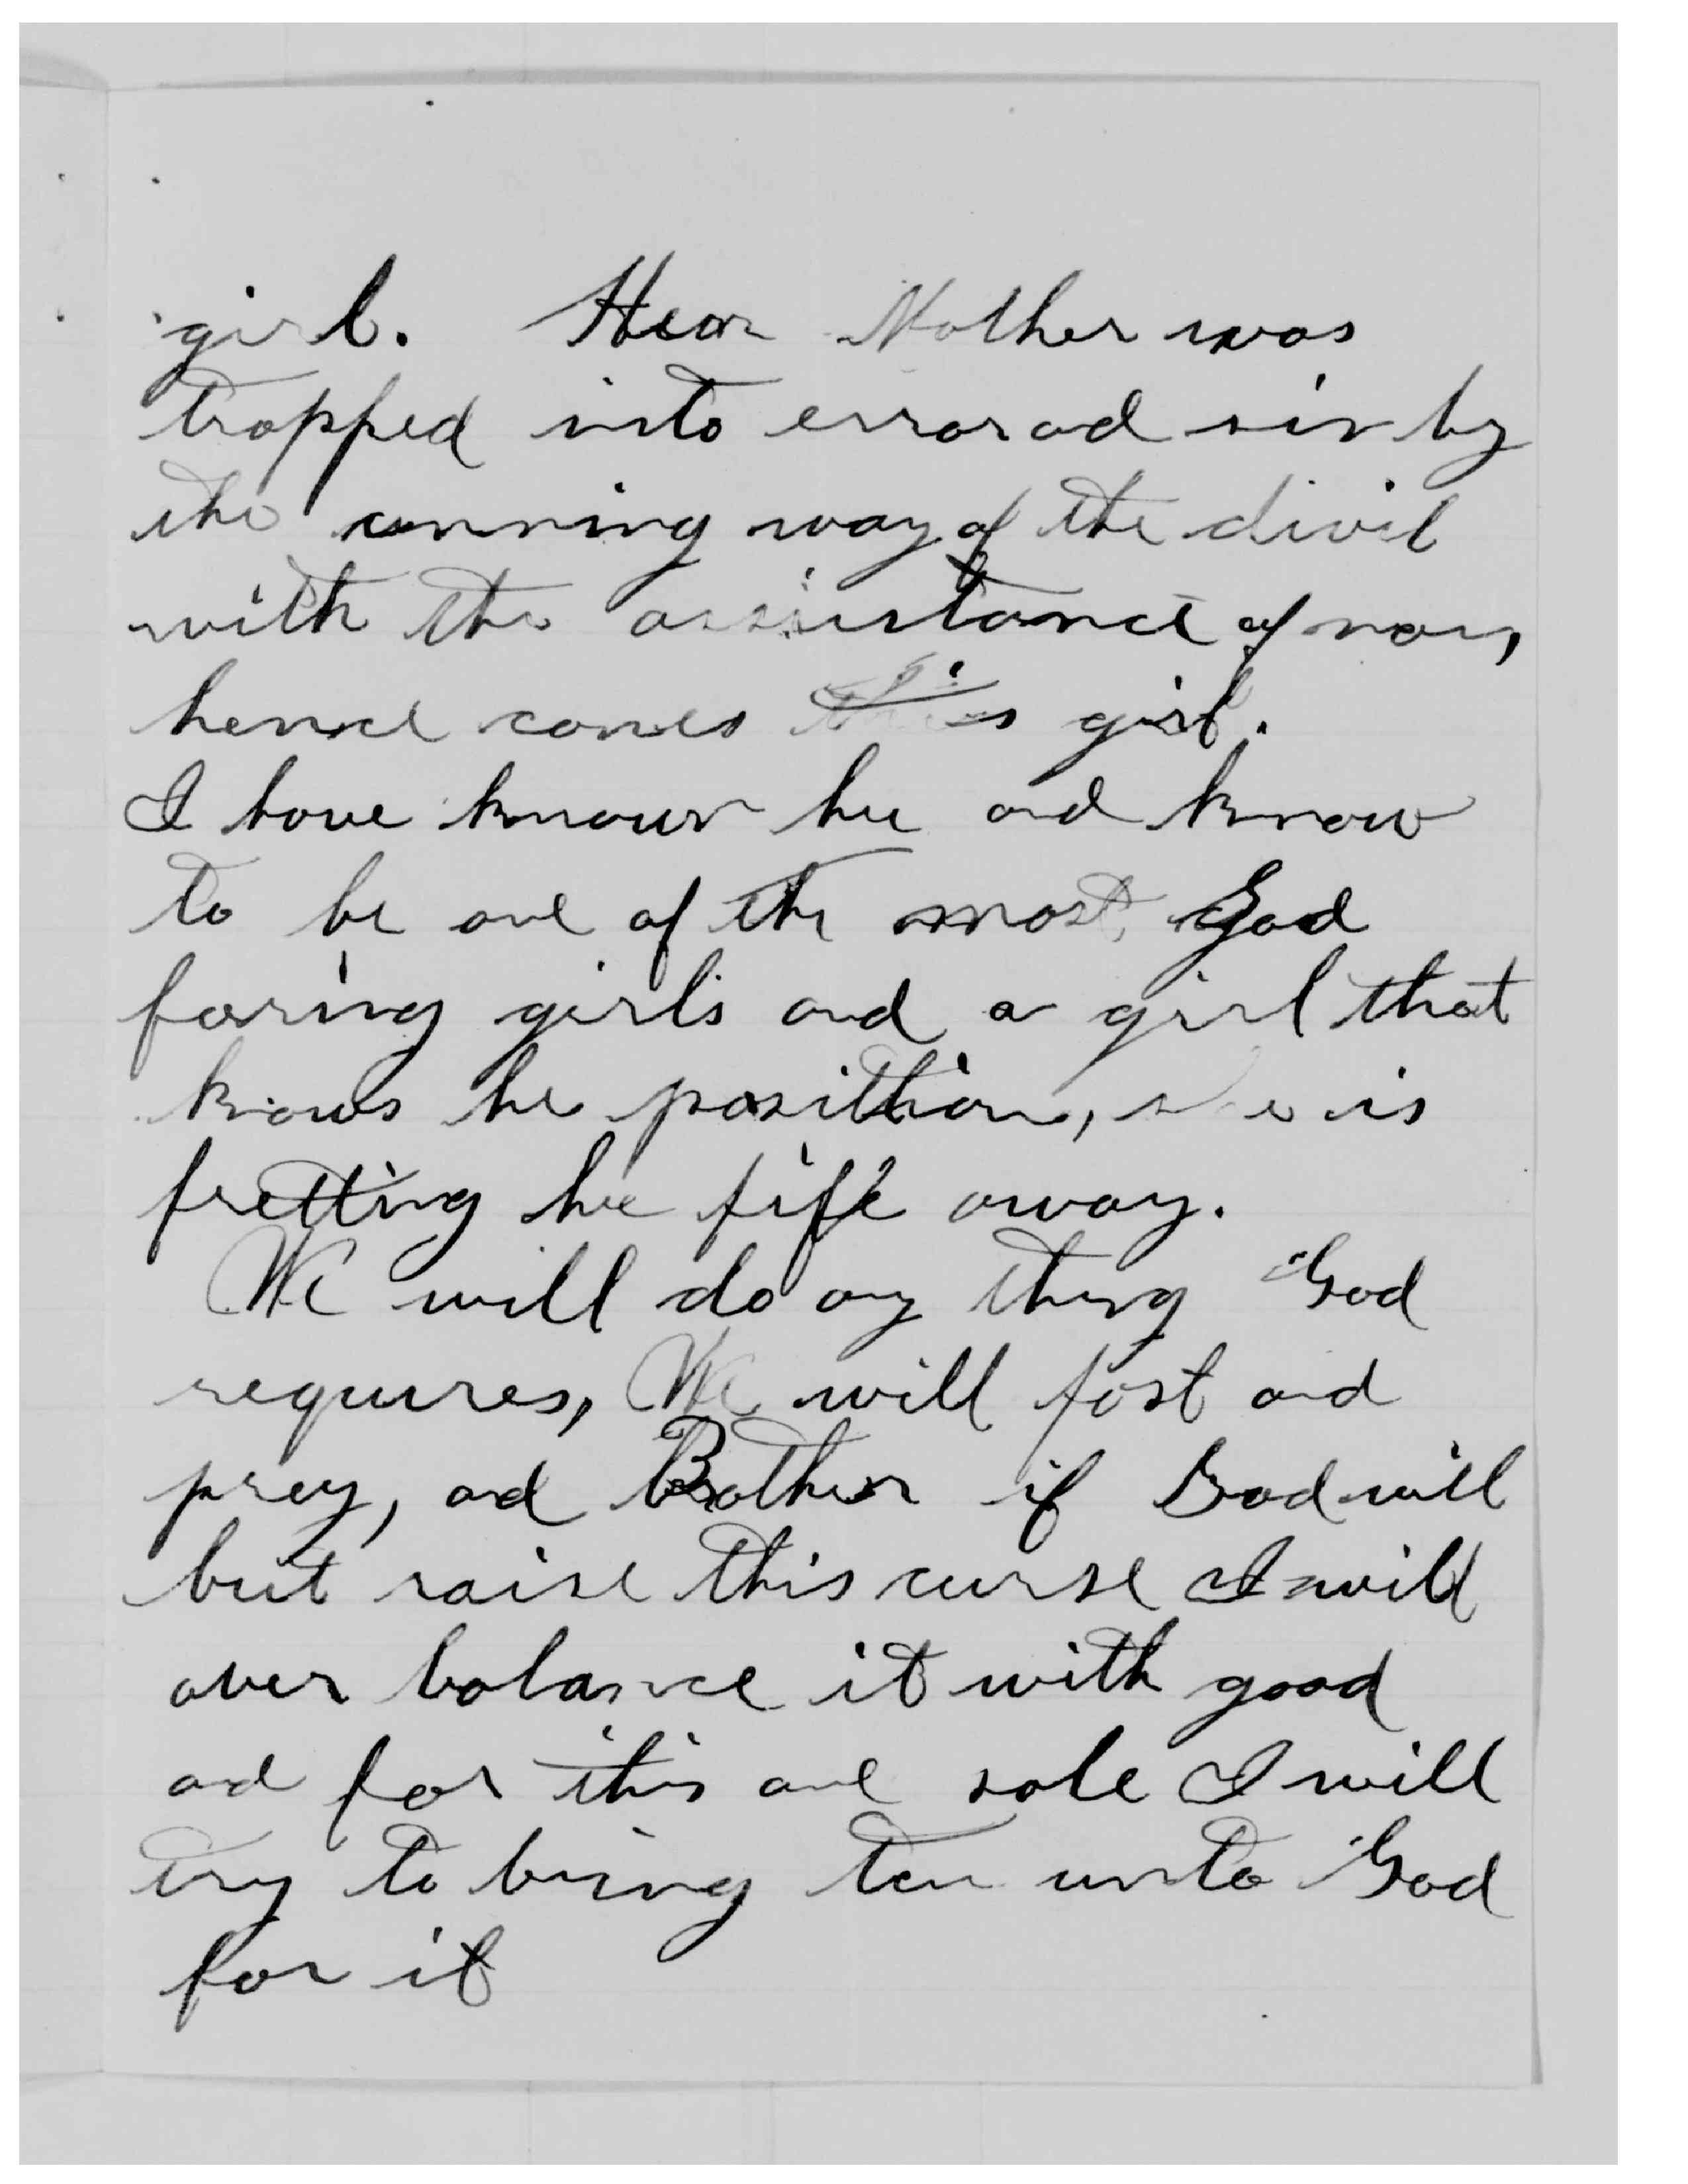 girl. Hear Mother was
trapped into error ad sin by
the cunning way of the divil
with the assistance of man,
hence comes this girl.
I have known her and know
to be one of the most God
faring girls and a girl that
knows he posittion, she is
fretting her life away.
We will do any thing God
requires, We will fast and
prey, ad Brother if God will
but raise this curse I will
over balance it with good
ad for this one sole I will
try to bring ten unto God
for it